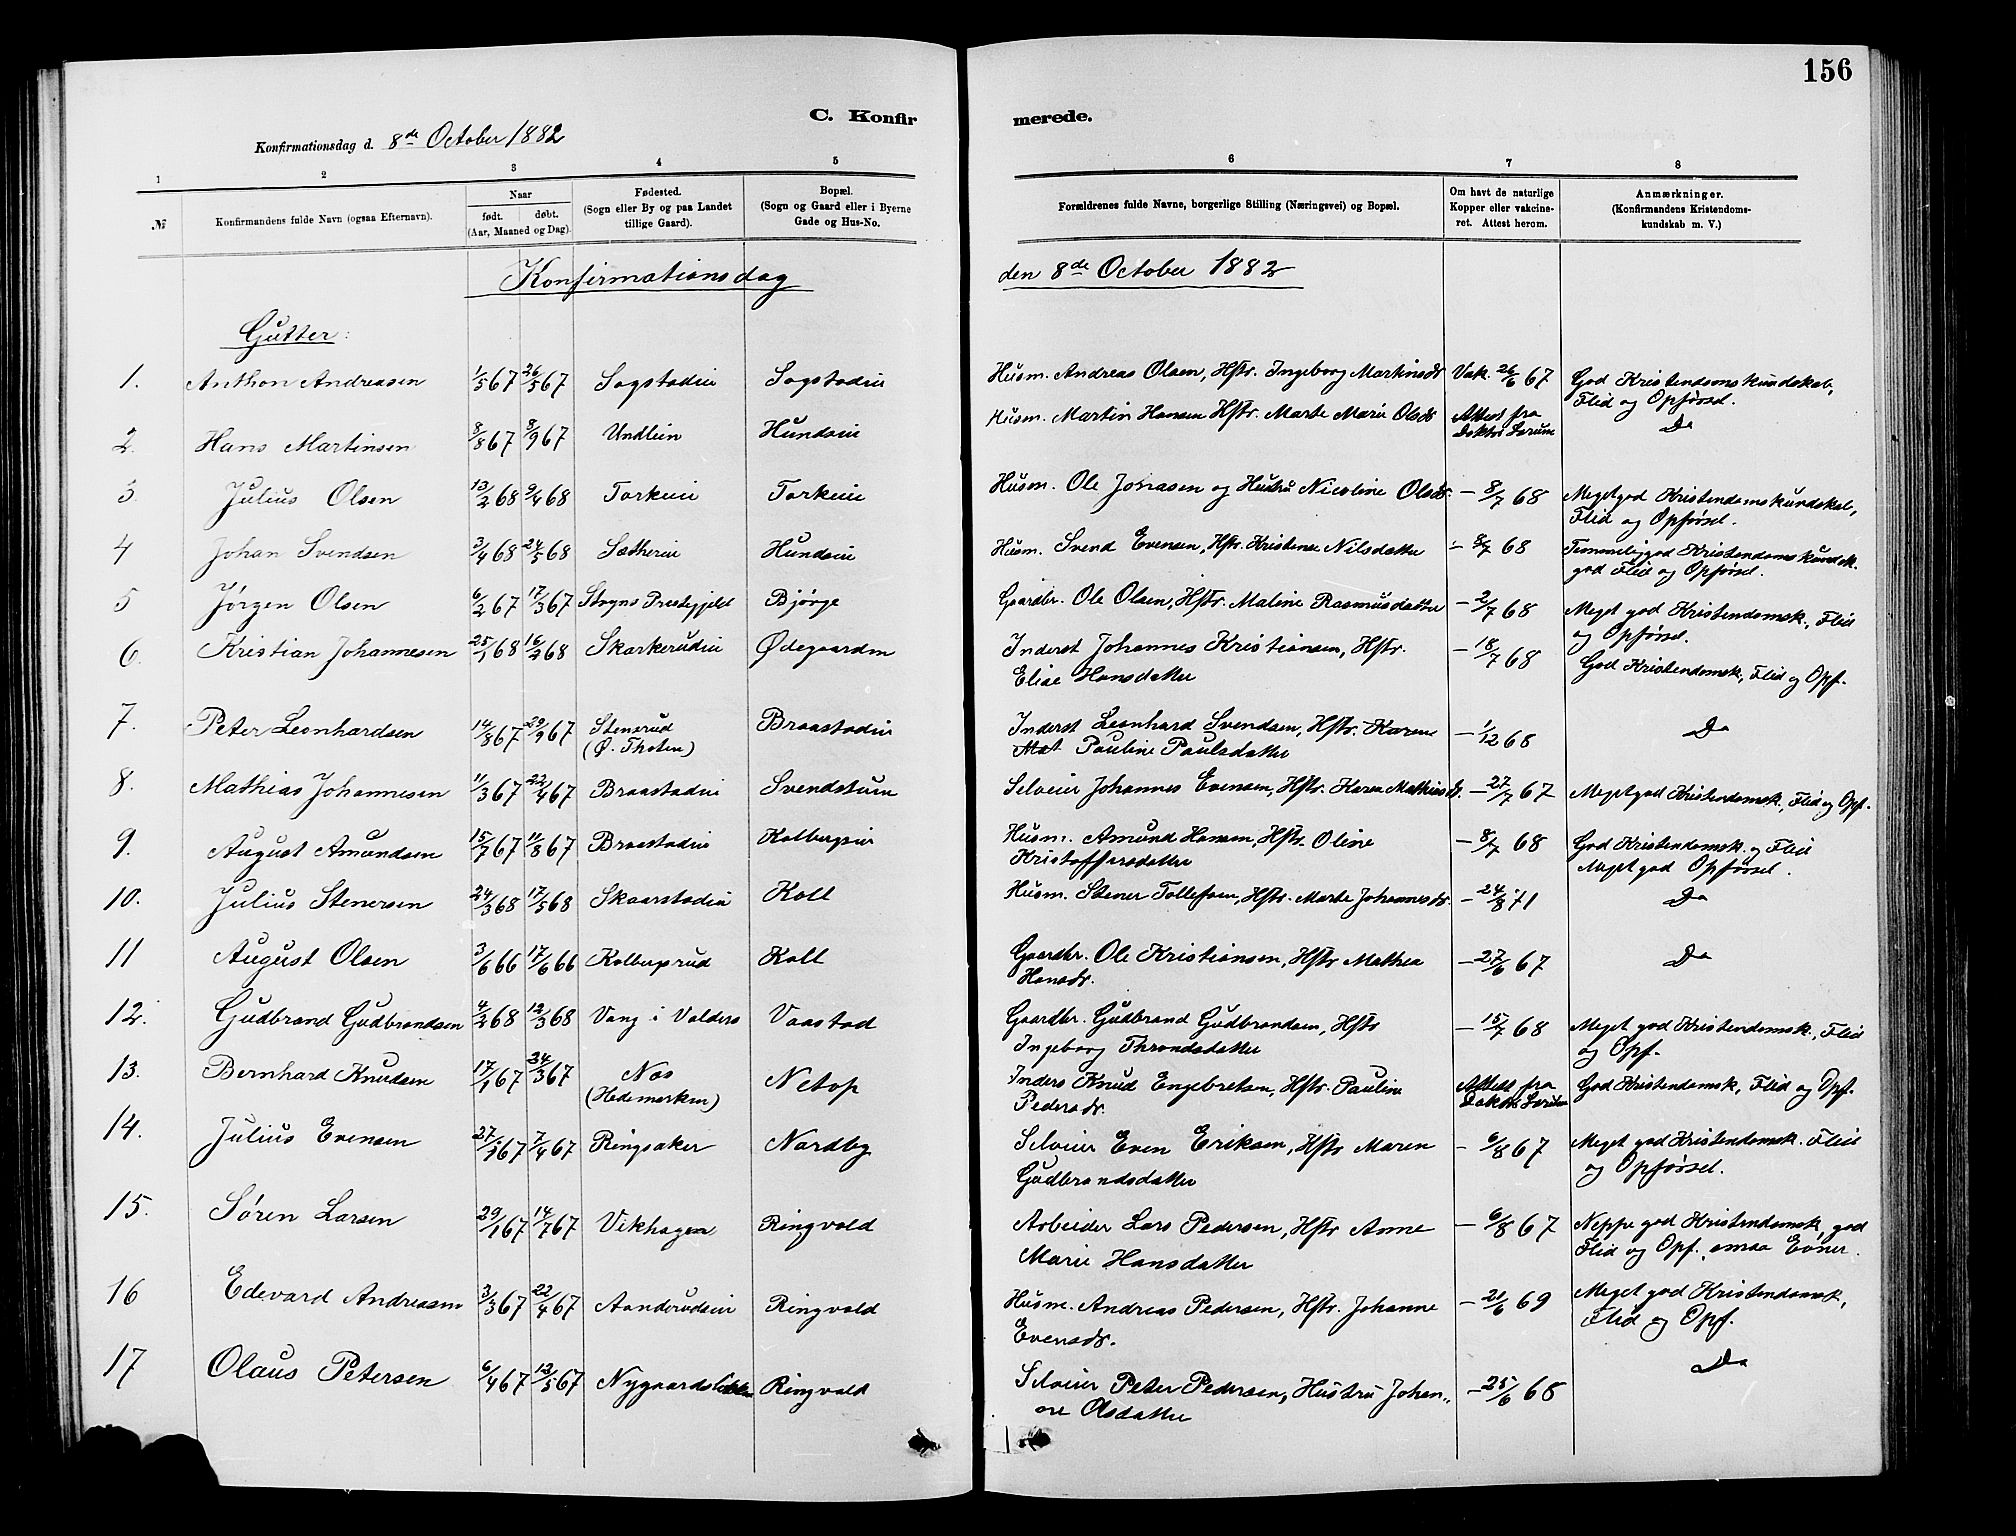 156
C. Konfir merede.
Konfirmationsdag d. 8de October 1882
1 2 3 4 5 6 7 8
№
Konfirmandens fulde Navn (ogsaa Efternavn).
Naar
født. døbt.
(Aar, Maaned og Dag).
Fødested.
(Sogn eller By og paa Landet
tillige Gaard).
Bopæl.
(Sogn og Gaard eller i Byerne
Gade og Hus-No.
Forældrenes fulde Navne, borgerlige Stilling (Næringsvei) og Bopæl.
Om havt de naturlige
Kopper eller vakcine-
ret. Attest herom.
Anmærkninger.
(Konfirmandens Kristendoms-
kundskab m. V.)
Konfirmationsdag den 8de October 1882
Gutter:
1. Anthon Andreasen 1/5 67 26/5 67 Sogstadeie Sogstadeie Husm. Andreas Olsen, Hstr. Ingeborg Martinsdr Vak. 26/6 67 God Kristendomskundskab,
Flid og Opførsel.
2. Hans Martinsen 8/8 67 8/9 67 Undlein Hundseie Husm. Martin Hansen Hstr. Marte Marie Olsdr Attest fra
Doktor Do
3 Julius Olsen 13/2 68 9/4 68 Torkeie Torkeie Husm. Ole Jonasen og Hustru Nicoline Olsdr. – 8/7 68 Meget god Kristendomskundskab,
Flid og Opførsel.
4 Johan Svendsen 3/4 68 24/5 68 Sætherie Hundseie Husm. Svend Evensen, Hstr. Kristense Nilsdatter – 8/7 68 Temmelig god Kristendomskundsk.
god Flid og Opførsel.
5 Jørgen Olsen 6/2 67 17/3 67 Stryns Prestegjeld Bjørge Gaardbr. Ole Olsen, Hstr. Maline Rasmusdatter – 2/7 68 Meget god Kristendomsk., Flid
og Opførsel.
6. Kristian Johannesen 25/1 68 16/2 68 Skarkerudeie Ødegaarden Inderst Johannes Kristiansen, Hstr.
Elise Hansdatter – 18/7 68 God Kristendomsk., Flid og Opf.
7. Peter Leonhardsen 14/8 67 29/9 67 Stenerud
(Ø. Thoten) Braastadeie Inderst Leonhard Svendsen, Hstr. Karene
Mat Pauline Paulsdatter – 1/12 68 Do
8. Mathias Johannesen 11/3 67 22/4 67 Braastadeie Svendstuen Selveier Johannes Evensen, Hstr. Karen Mathiasdr. – 27/7 67 Meget god Kristendomsk., Flid og Opf.
9. August Amundsen 15/7 67 11/8 67 Braastadeie Kolbergseie Husm. Amund Hansen, Hstr. Oline
Kristoffersdatter – 8/7 68 God Kristendomsk. og Flid
Meget god Opførsel.
10. Julius Stenersen 24/3 68 17/5 68 Skaarstadeie Koll Husm. Stener Tollefsen, Hstr. Marte Johannesdr. – 24/8 71 Do
11 August Olsen 3/6 66 17/6 66 Kolbergsrud Koll Gaardbr. Ole Kristiansen, Hstr Mathea
Hansdr. – 27/6 67 Do
12. Gudbrand Gudbrandsen 4/2 68 12/3 68 Vang i Valders Vaastad Gaardbr. Gudbrand Gudbrandsen, Hstr
Ingeborg Throndsdatter – 15/7 68 Meget god Kristendomsk., Flid
og Opf.
13. Bernhard Knudsen 17/1 67 24/3 67 Nes
(Hedemarken) Netop Inders Knud Engebretsen, Hstr. Pauline
Pedersdr. Attest fra
Doktor God Kristendomsk, Flid og Opf.
14. Julius Evensen 27/1 67 7/4 67 Ringsaker Nordby Selveier Even Eriksen, Hstr Maren
Gudbrandsdatter – 6/8 67 Meget god Kristendomsk. Flid
og Opførsel.
15. Søren Larsen 29/1 67 14/7 67 Vikhagen Ringvold Arbeider Lars Pedersen, Hstr Anne
Marie Hansdatter – 6/8 67 Neppe god Kristendomsk, god
Flid og Opf. smaa Evner.
16 Edevard Andreasen 3/3 67 22/4 67 Aanderudeie Ringvold Husm. Andreas Pedersen, Hstr. Johanne
Evensdr. – 21/6 69 Meget god Kristendomsk,
Flid og Opf.
17 Olaus Petersen 6/4 67 12/5 67 Ringvold Selveier Peter Pedersen, Hustru Johan-
ne Olsdatter – 25/6 68 Do